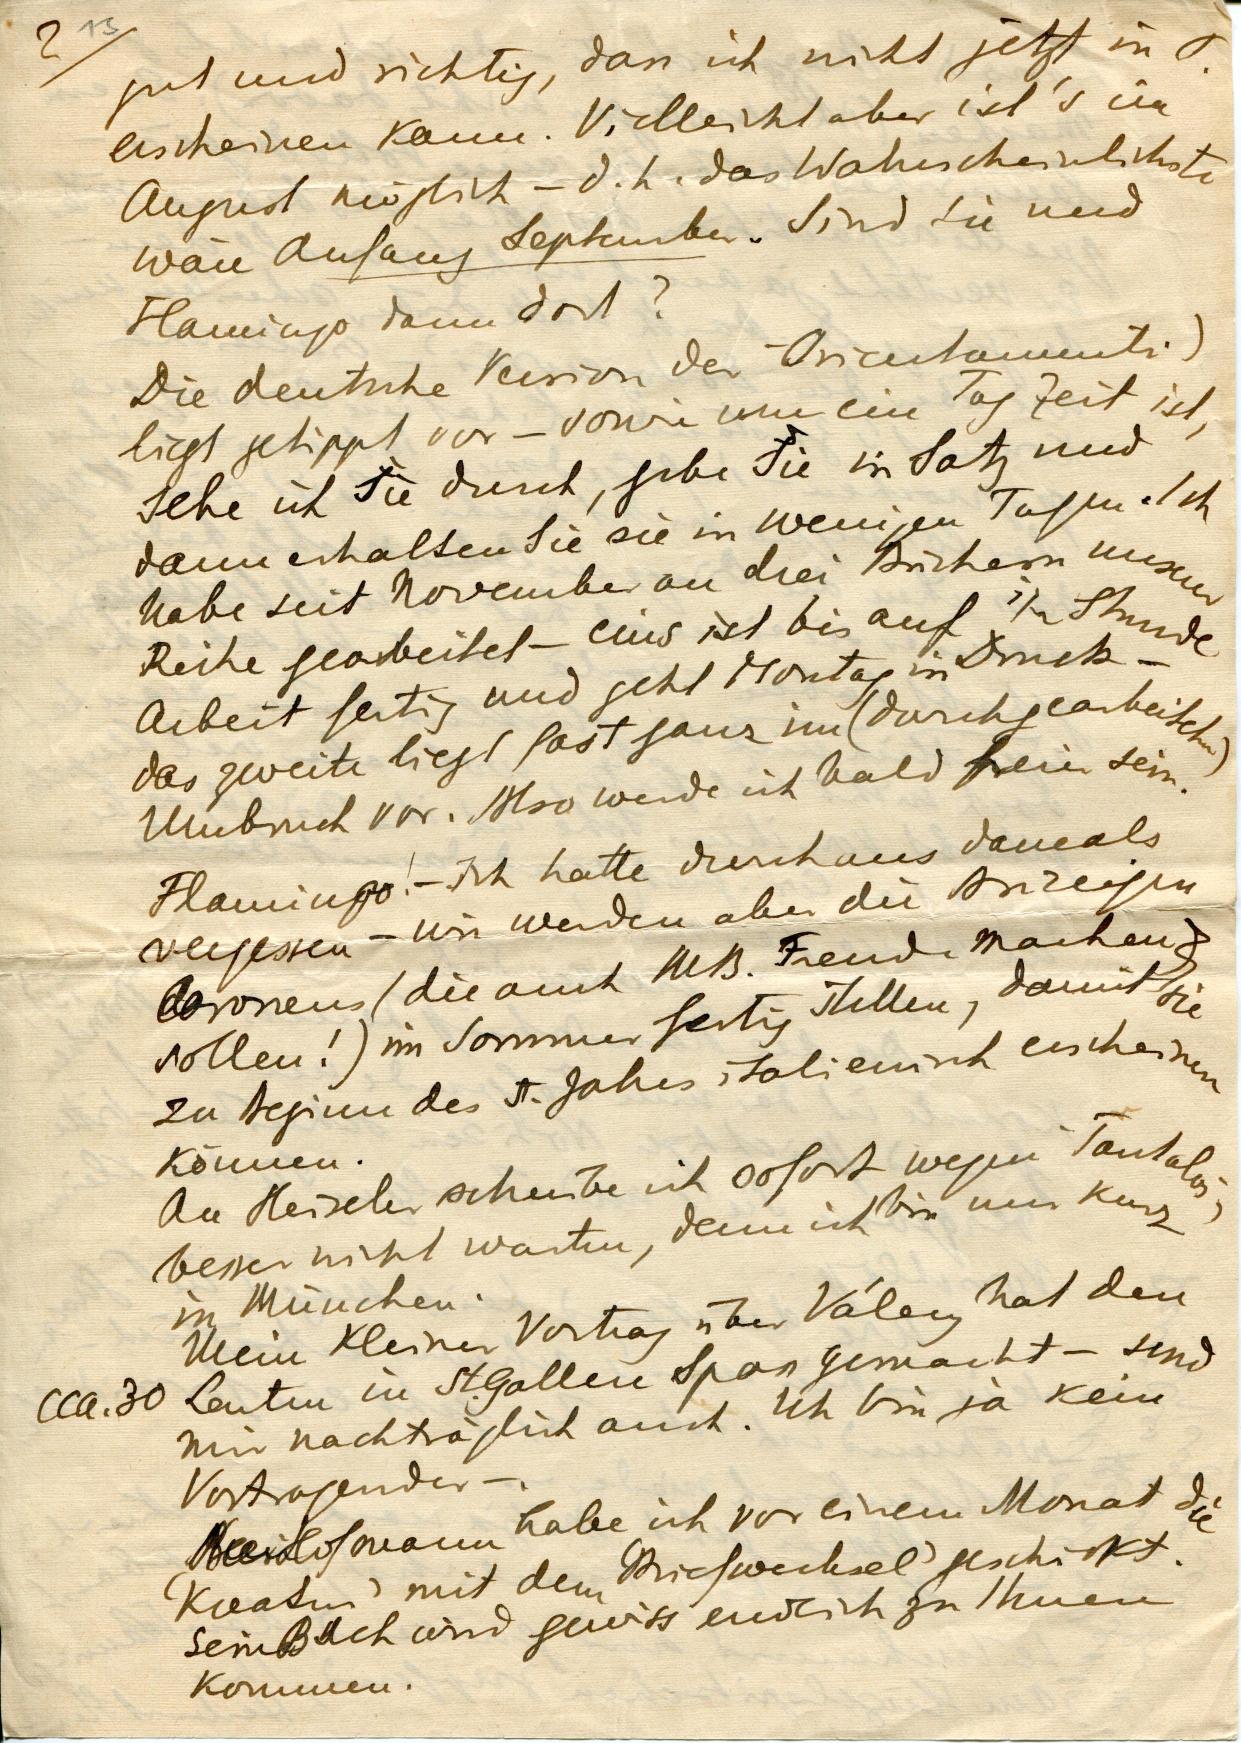 2/ 13
gut und richtig, dass ich nicht jetzt in P.
erscheinen kann. Vielleicht aber ist's im
August möglich – d.h. das Wahrscheinlichste
wäre Anfang September. Sind Sie und
Flamingo dann dort?
Die deutsche Version der Orientamenti)
liegt getippt vor – sowie nur ein Tag Zeit ist,
sehe ich sie durch, gebe sie in Satz und
dann erhalten Sie sie in wenigen Tagen. Ich
habe seit November an drei Büchern unserer
Reihe gearbeitet – eins ist bis auf 1/2 Stunde
Arbeit fertig und geht Montag in Druck –
das zweite liegt fast ganz im (durchgearbeiteten)
Umbruch vor. Also werde ich bald freier sein.
Flamingo! – Ich hatte durchaus damals
vergessen – wir werden aber die Anzeigen
(die auch MB. Freude machen
sollen!) im Sommer fertig stellen, damit sie
zu Beginn des n. Jahres italienisch erscheinen
können.
An Heiseler schreibe ich sofort wegen Tantalos,
besser nicht warten, denn ich bin nur kurz
in München.
Mein kleiner Vortrag über Váléry hat den
cca. 30 Leuten in St. Gallen Spass gemacht – und
mir nachträglich auch. Ich bin ja kein
Vortragender –.
habe ich vor einem Monat die
'Kreatur' mit dem 'Briefwechsel' geschickt.
Sein Buch wird gewiss endlich zu Ihnen
kommen.